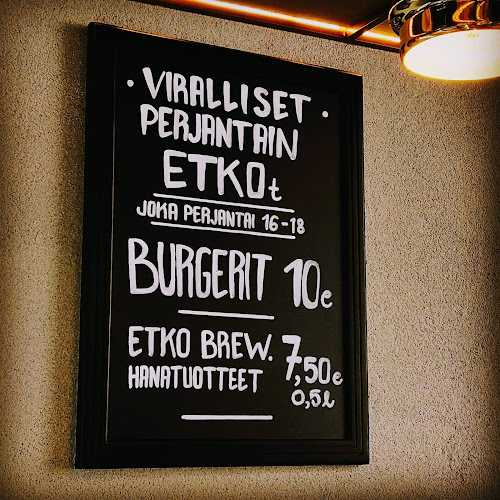 · VIRALLISET ·
PERJANTAIN
ETKOt
JOKA PERJANTAI 16-18
BURGERIT 10e
ETKO BREW. 7,50e
HANATUOTTEET 0,5l